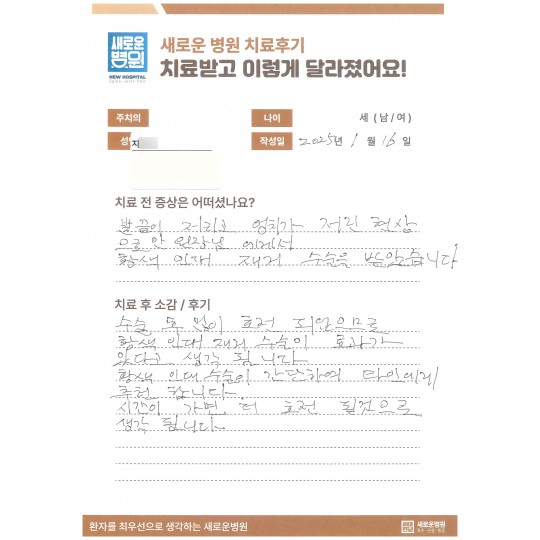 새로운
병원
NEW HOSPITAL
새로운 병원 치료후기
치료받고 이렇게 달라졌어요!
주치의
나이
세 ( 남 / 여 )
성
지
작성일
2025년 1월 16일
치료 전 증상은 어떠셨나요?
발끝이 저리고 엉치가 저린 현상
으로 안 원장님 에게서
황색 인대 재거 수술을 받았습니다
치료 후 소감 / 후기
수술 후 많이 호전 되었으므로
황색 인대 재거 수술이 효과가
있다고 생각 됩니다
황색 인대 수술이 간단하여 타인에게
추천 합니다.
시간이 가면 더 호전 될것으로
생각 됩니다.
환자를 최우선으로 생각하는 새로운병원
새로운병원